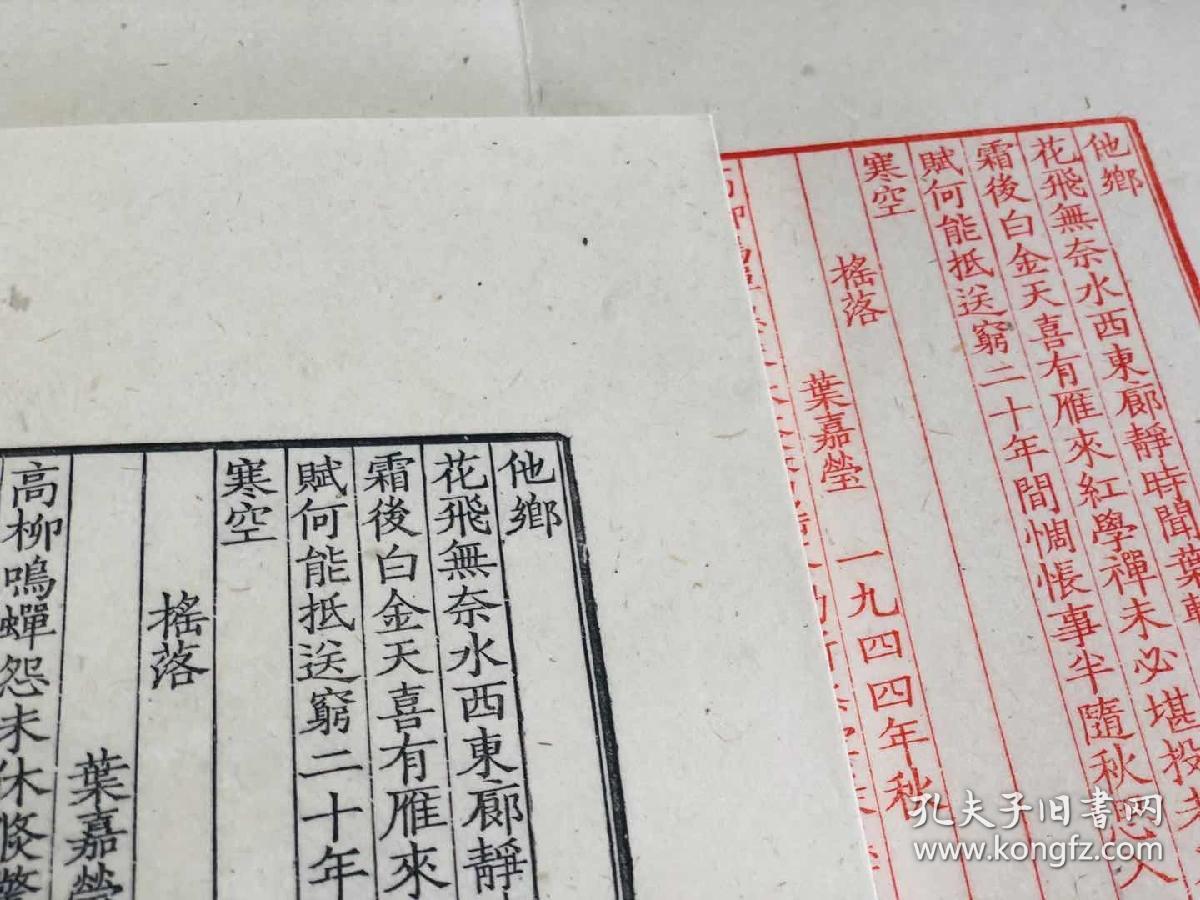 他鄉
花飛無奈水西東廊靜時聞葉
霜後白金天喜有雁來紅學禪未必堪投老
賦何能抵送窮二十年間惆悵事半隨秋思入
寒空
搖落
葉嘉瑩 一九四四年秋
他鄉
花飛無奈水西東廊靜
霜後白金天喜有雁來
賦何能抵送窮二十年
寒空
搖落
葉嘉瑩
高柳鳴蟬怨未休倏驚
孔夫子旧书网
www.kongfz.com